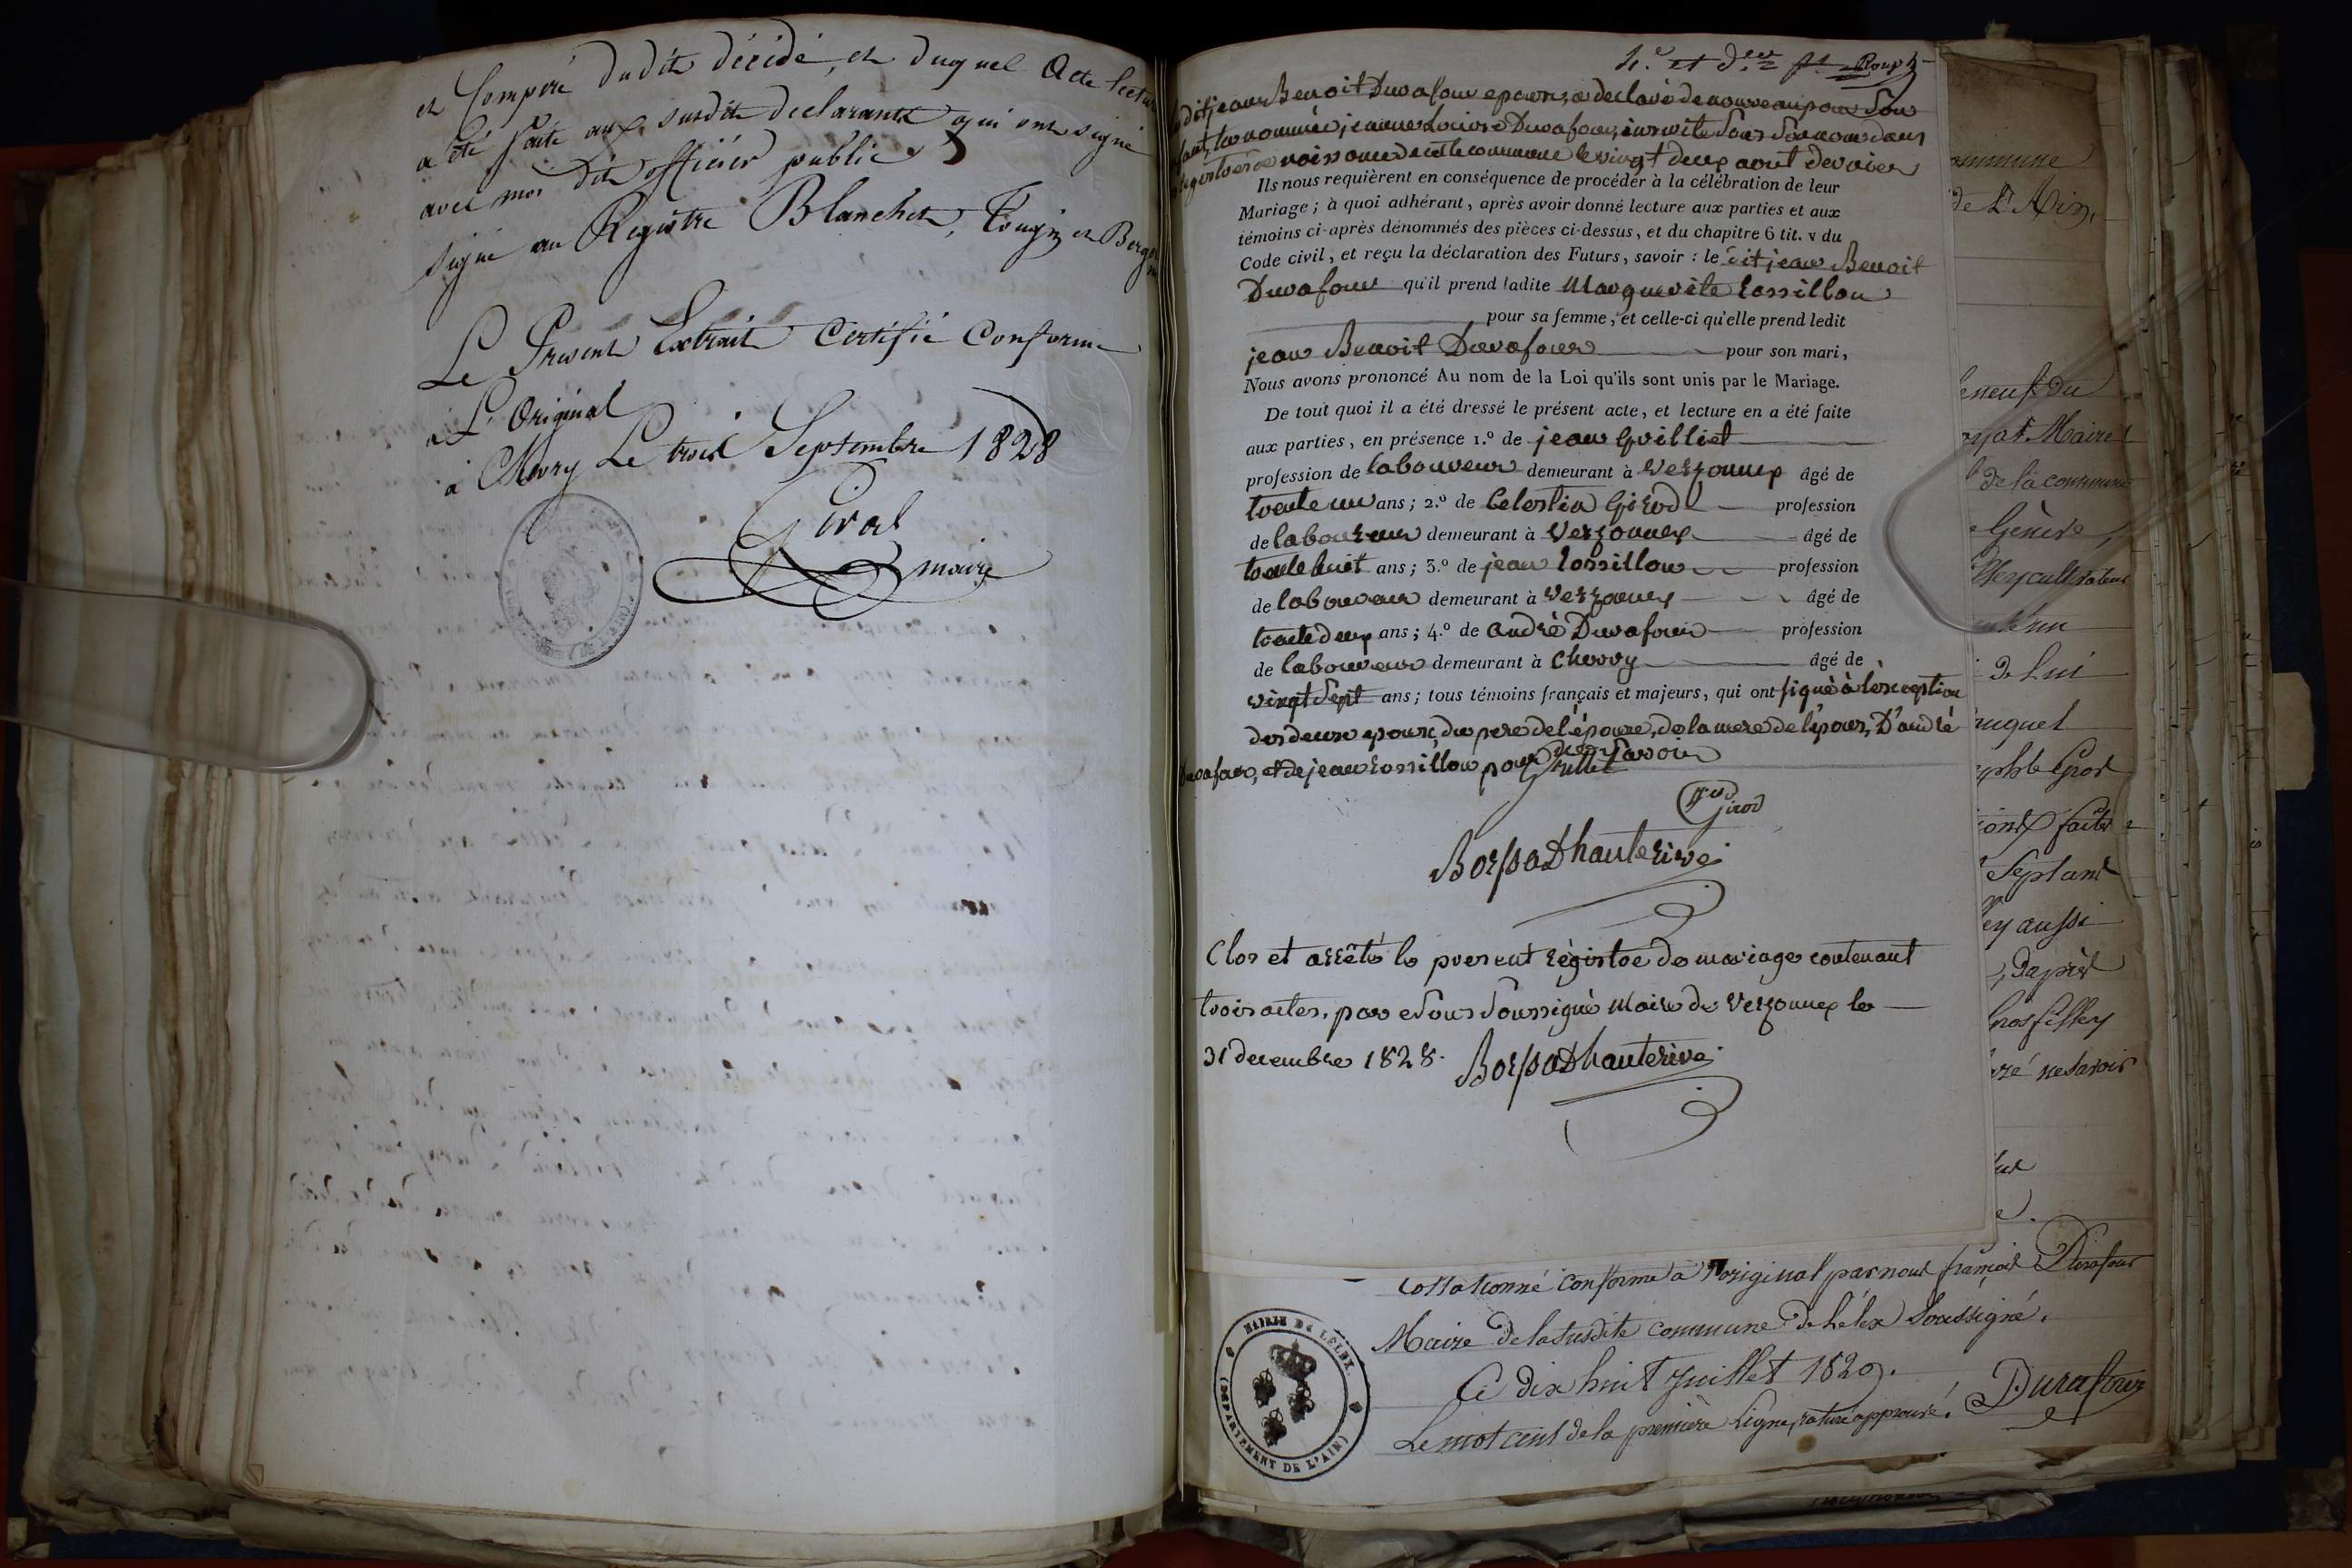 et Compéré dudit décédé, et duquel Acte lecture
a été faite aux susdits déclarants qui ont signé
avec moi dit officier public
signé au Registre Blanchet, Tougin et
Le Présent Extrait Certifié Conforme
à L'Original
à Chevry Le trois Septembre 1828
Girod
maire
4.e et d.er f.t
dit jean Benoit Durafour epoux, a déclaré de nouveau pour son
enfant, la nommée jeanne Louise Durafour, inscrite sous son nom dans
registres de naissance de cette commune le vingt deux aout dernier
Ils nous requièrent en conséquence de procéder à la célébration de leur
Mariage ; à quoi adhérant, après avoir donné lecture aux parties et aux
témoins ci-après dénommés des pièces ci-dessus, et du chapitre 6 tit. v du
Code civil, et reçu la déclaration des Futurs, savoir : le dit jean Benoit
Durafour qu'il prend ladite Marguerite Rossillon
pour sa femme, et celle-ci qu'elle prend ledit
jean Benoit Durafour pour son mari,
Nous avons prononcé Au nom de la Loi qu'ils sont unis par le Mariage.
De tout quoi il a été dressé le présent acte, et lecture en a été faite
aux parties, en présence 1.º de jean Grilliet
profession de laboureur demeurant à Versonnex âgé de
trente un ans ; 2.º de Celestin Girod profession
de laboureur demeurant à Versonnex âgé de
trente huit ans ; 3.º de jean Rossillon profession
de laboureur demeurant à Versonnex âgé de
trente deux ans ; 4.º de andré Durafour profession
de laboureur demeurant à Chevry âgé de
vingt sept ans ; tous témoins français et majeurs, qui ont signé à l'exception
des deux epoux, du pere de l'épouse, de la mere de l'epoux, D'andré
Durafour, et de jean Rossillon pour ne savoir
Grilliet
Girod
Borssat Dhauterive
Clos et arrêté le present régistre de mariage contenant
trois actes, par Nous soussigné Maire de Versonnex le
31 decembre 1828. Borssat Dhauterive
ommune
de L'Ain,
neuf du
Maire
de la commune
Genève,
cultivateur
de Lui
uquel
faites
Septante
ey aussi
, Dapres
ne savoir
Collationné conforme à l'original par nous françois Durafour
Maire de la susdite commune de Lélex Soussigné.
Ce dix huit Juillet 1829.
Le mot cent de la première Ligne, raturé approuvé. Durafour
MAIRIE DE LÉLEX
(DÉPARTEMENT DE L'AIN)